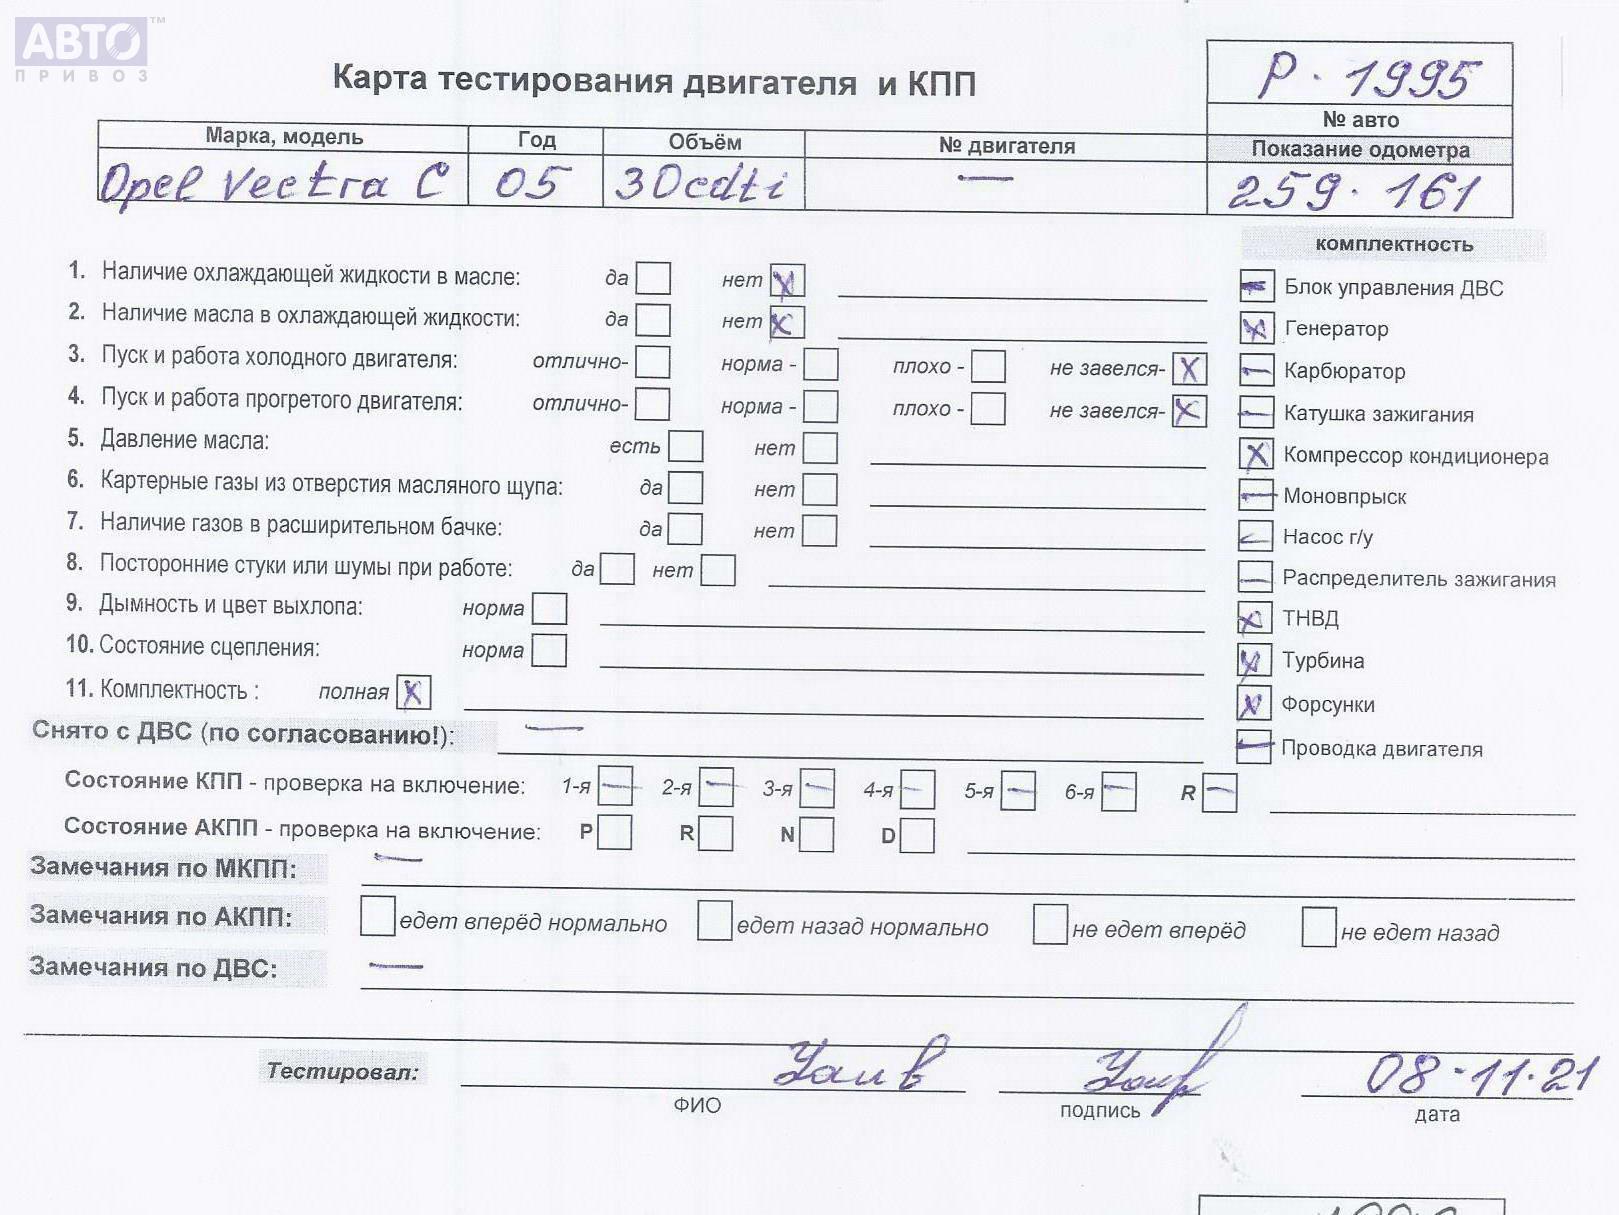 АВТО™
ПРИВОЗ
Карта тестирования двигателя и КПП
Р. 1995
№ авто
Марка, модель Год Объём № двигателя Показание одометра
Opel Vectra C 05 30cdti — 259.161
комплектность
1. Наличие охлаждающей жидкости в масле: да нет X
2. Наличие масла в охлаждающей жидкости: да нет X
3. Пуск и работа холодного двигателя: отлично- норма - плохо - не завелся- X
4. Пуск и работа прогретого двигателя: отлично- норма - плохо - не завелся- X
5. Давление масла: есть нет
6. Картерные газы из отверстия масляного щупа: да нет
7. Наличие газов в расширительном бачке: да нет
8. Посторонние стуки или шумы при работе: да нет
9. Дымность и цвет выхлопа: норма
10. Состояние сцепления: норма
11. Комплектность : полная X
— Блок управления ДВС
X Генератор
— Карбюратор
— Катушка зажигания
X Компрессор кондиционера
— Моновпрыск
— Насос г/у
— Распределитель зажигания
X ТНВД
X Турбина
X Форсунки
— Проводка двигателя
Снято с ДВС (по согласованию!): —
Состояние КПП - проверка на включение: 1-я — 2-я — 3-я — 4-я — 5-я — 6-я — R —
Состояние АКПП - проверка на включение: P R N D
Замечания по МКПП: —
Замечания по АКПП: едет вперёд нормально едет назад нормально не едет вперёд не едет назад
Замечания по ДВС: —
Тестировал: 08.11.21
ФИО подпись дата